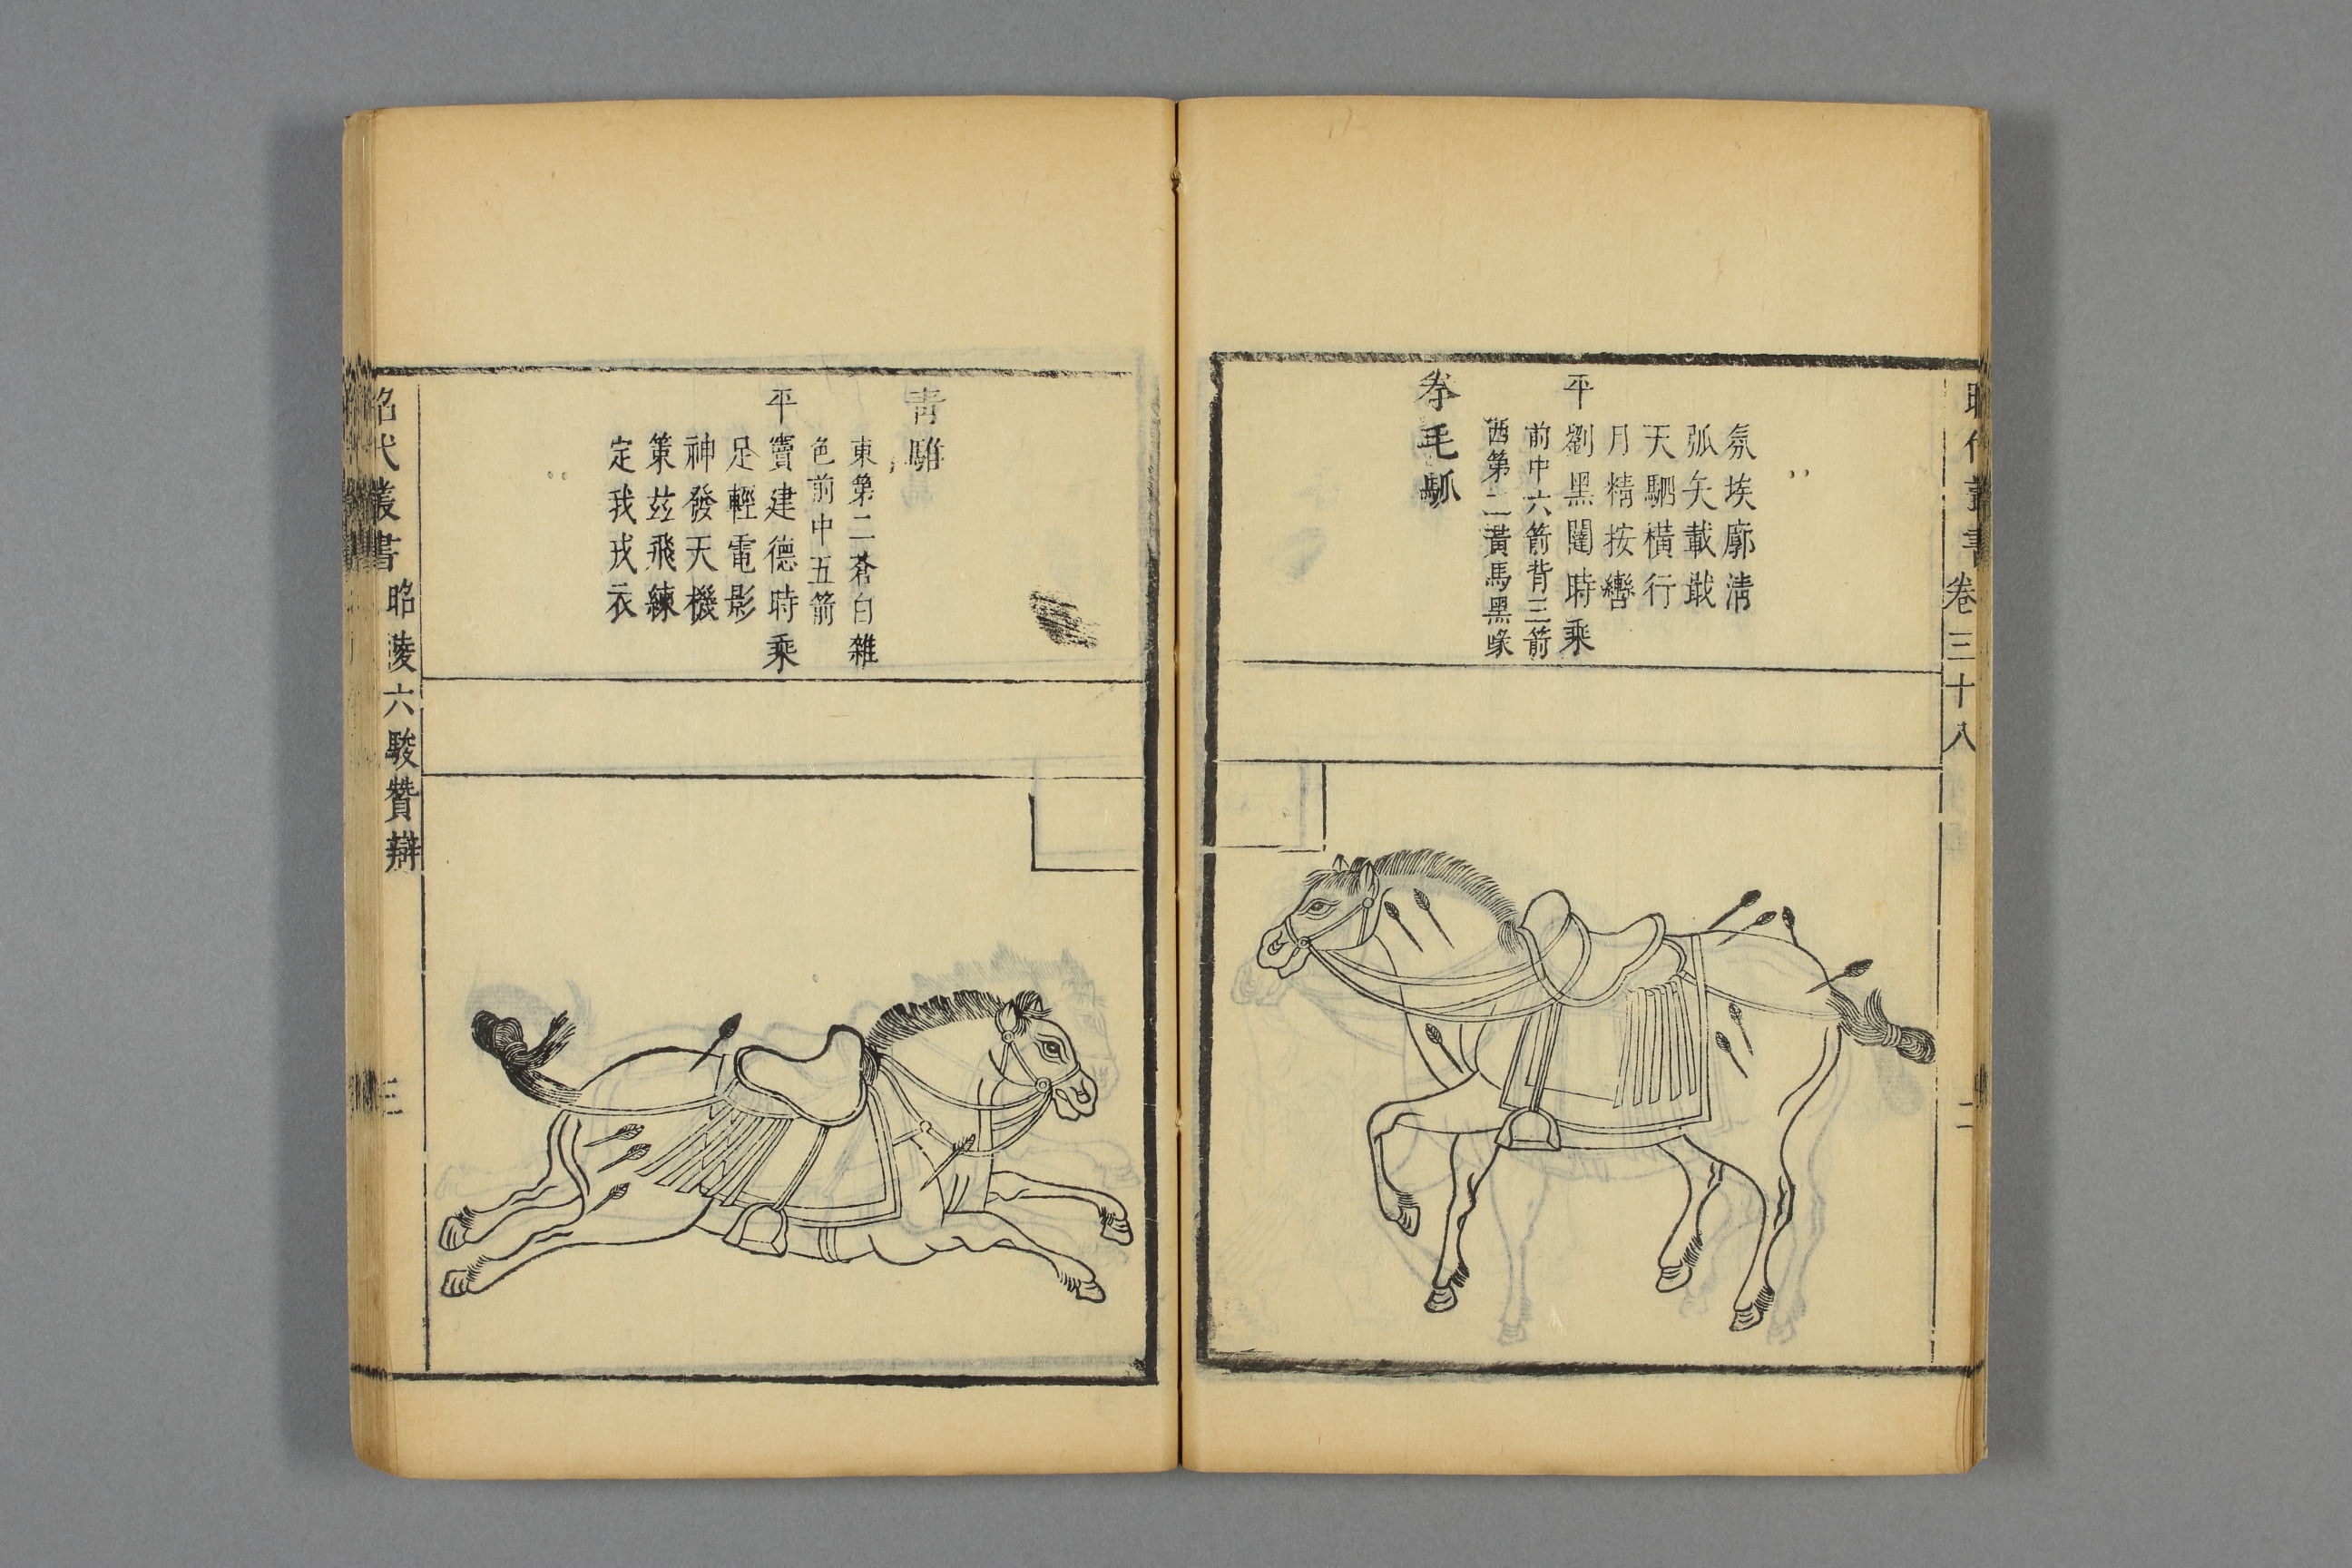 昭代叢書 卷三十八 二
拳毛騧
西第二黃馬黑喙
前中六箭背三箭
平劉黑闥時乘
月精按轡
天駟橫行
弧矢載戢
氛埃廓清
青騅
東第二蒼白雜
色前中五箭
平竇建德時乘
足輕電影
神發天機
策茲飛練
定我戎衣
昭代叢書 昭陵六駿贊辯 三